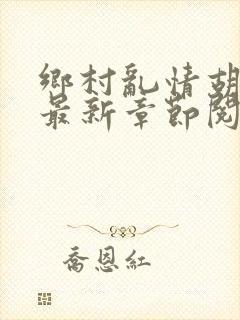 鄉村亂情胡
最新章節閱
喬恩紅